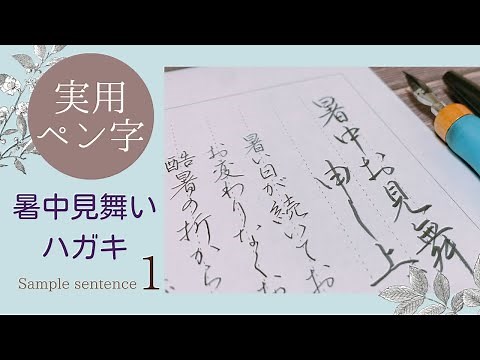 実用
ペン字
暑中見舞い
ハガキ
Sample sentence 1
暑中お見舞
申し上
暑い日が続いてお
お変わりなくお
酷暑の折から